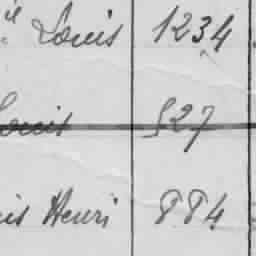 Louis 1234
Louis 527
is Henri 884